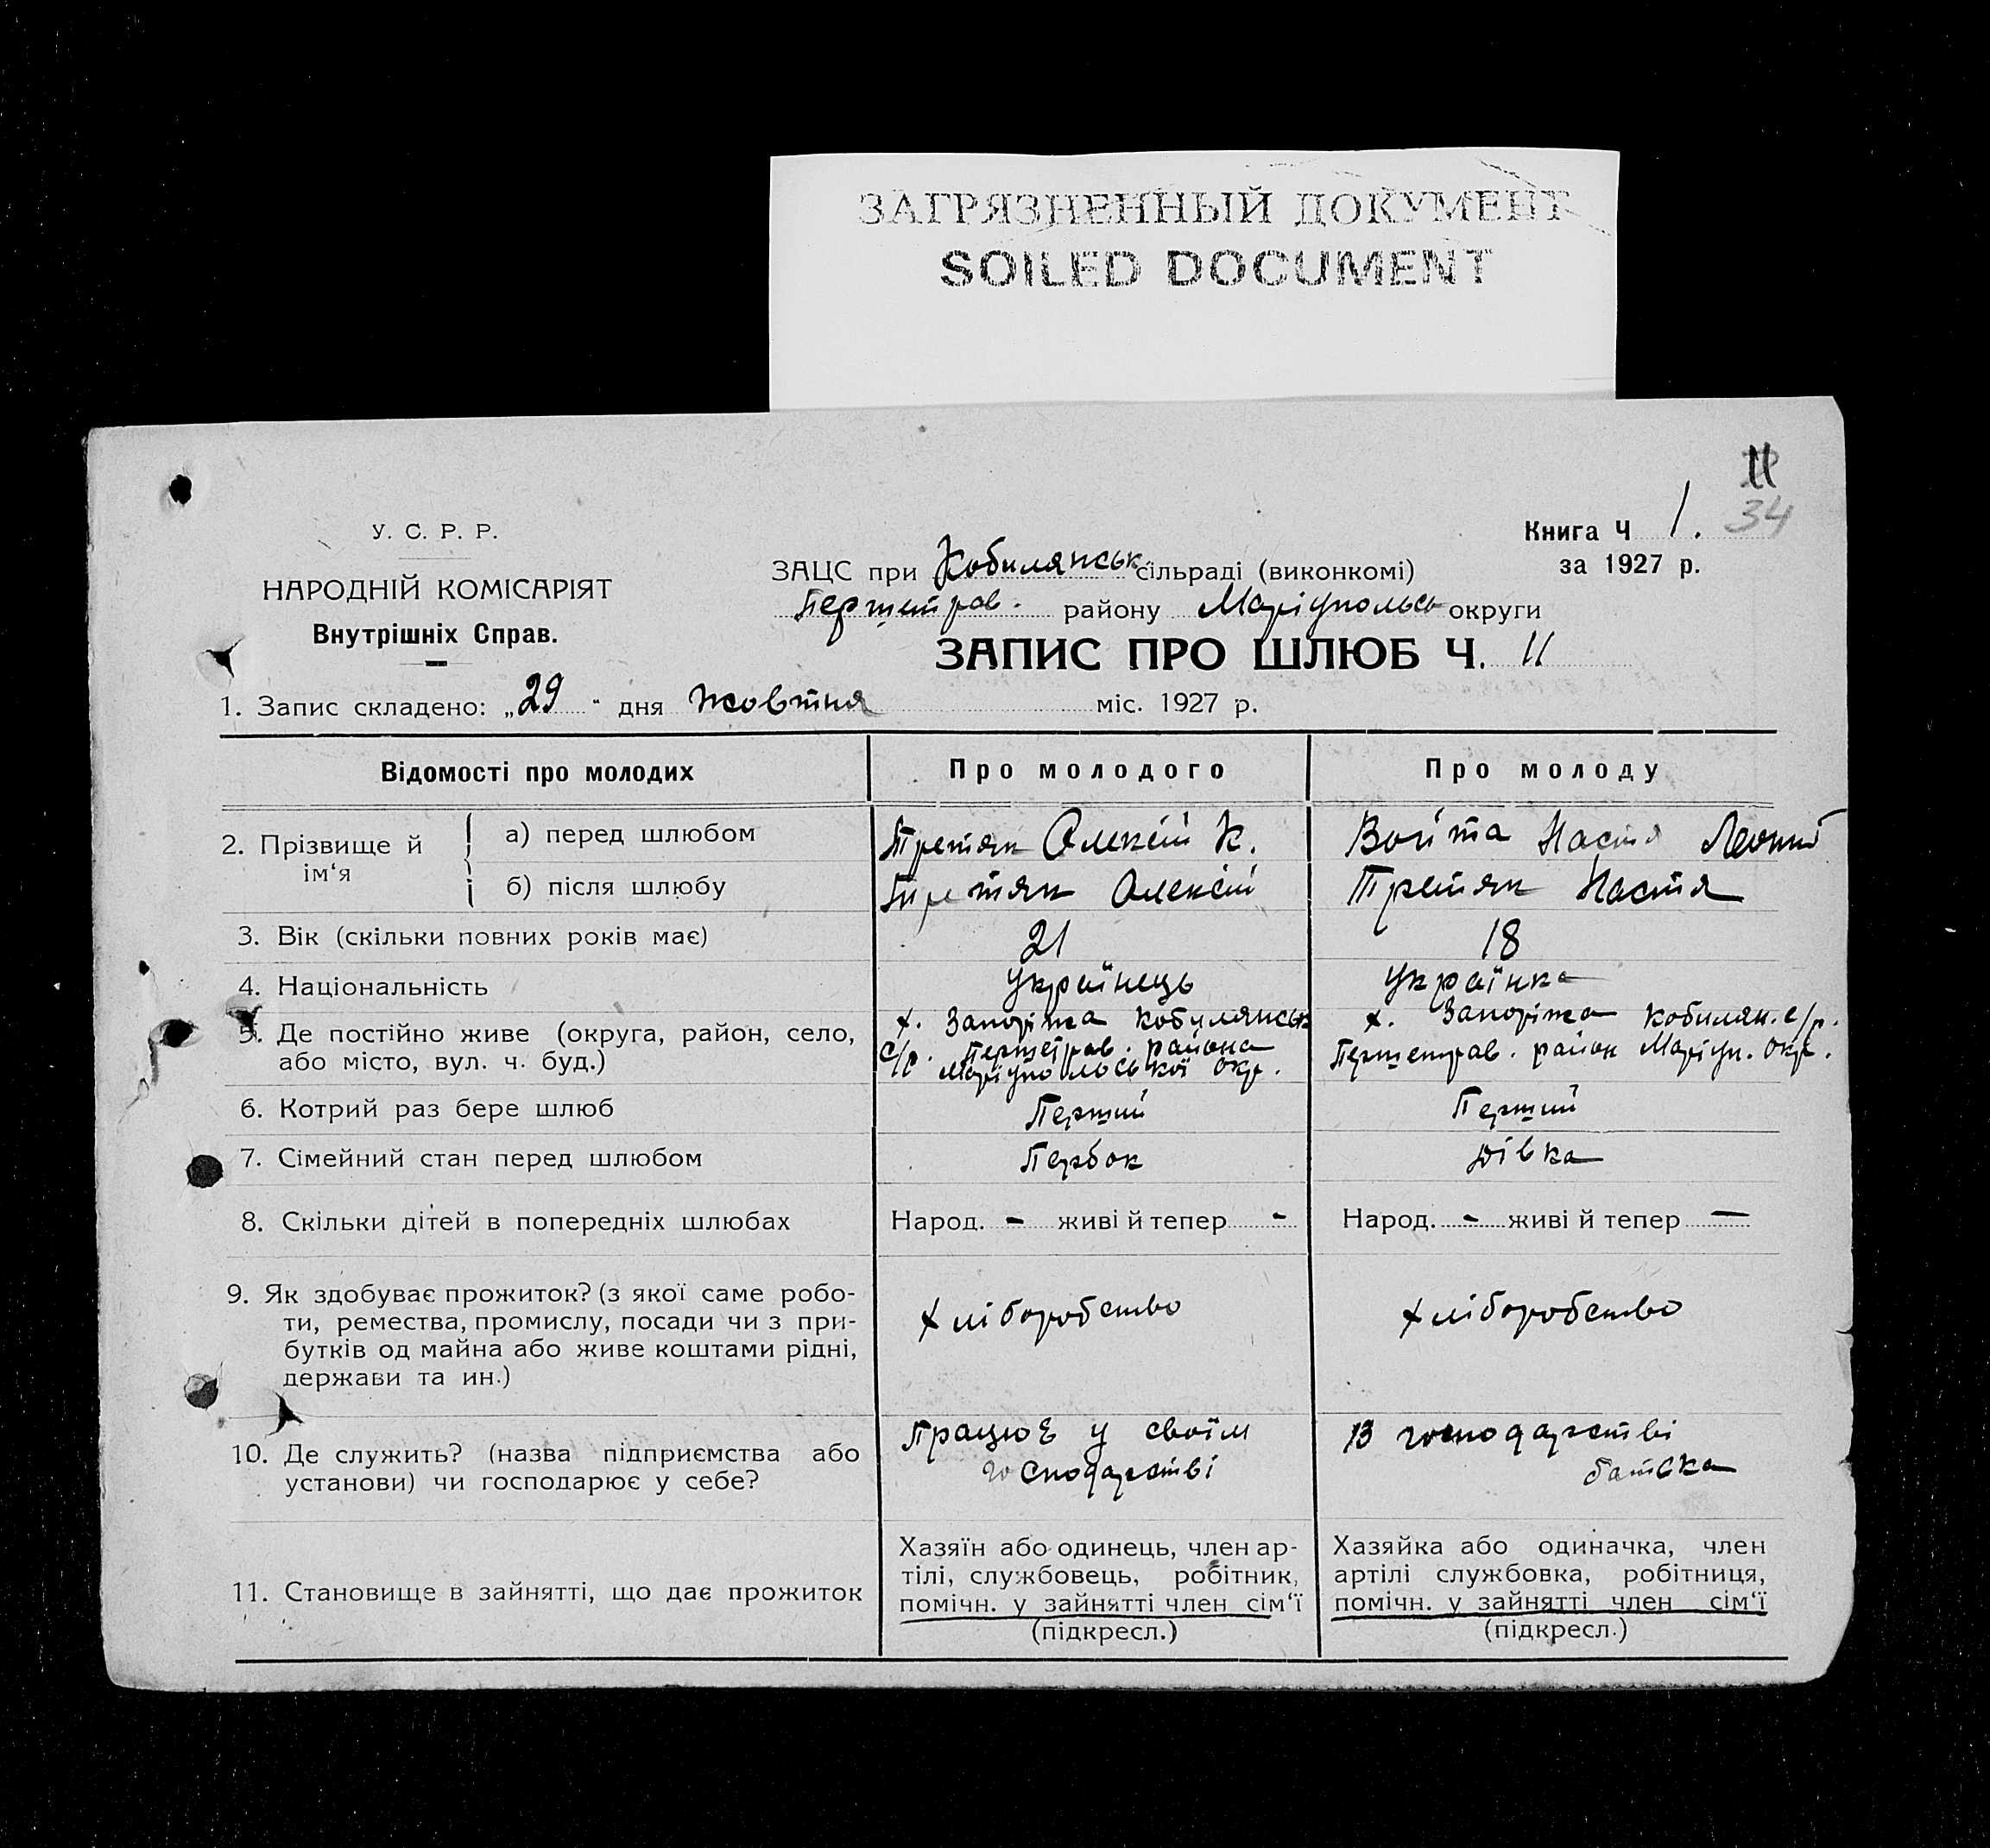 ЗАГРЯЗНЕННЫЙ ДОКУМЕНТ
SOILED DOCUMENT
11
34
Книга Ч 1.
за 1927 р.
У. С. Р. Р.
НАРОДНІЙ КОМІСАРІЯТ
Внутрішніх Справ.
ЗАЦС при Кобилянськ. сільраді (виконкомі)
Першетрав. району Маріупольсь округи
ЗАПИС ПРО ШЛЮБ Ч. 11
1. Запис складено: „29" дня жовтня міс. 1927 р.
Відомості про молодих Про молодого Про молоду
2. Прізвище й ім'я
а) перед шлюбом Третяк Олексій К. Войта Настя
б) після шлюбу Третяк Олексій Третяк Настя
3. Вік (скільки повних років має) 21 18
4. Національність Українець Українка
5. Де постійно живе (округа, район, село,
або місто, вул. ч. буд.)
х. Запоріжа Кобилянськ
с/р. Першетрав. района
Маріупольської окр.
х. Запоріжа Кобилян. с/р.
Першетрав. район Маріуп. окр.
6. Котрий раз бере шлюб Перший Перший
7. Сімейний стан перед шлюбом дівка
8. Скільки дітей в попередніх шлюбах Народ. - живі й тепер - Народ. - живі й тепер —
9. Як здобуває прожиток? (з якої саме робо-
ти, ремества, промислу, посади чи з при-
бутків од майна або живе коштами рідні,
держави та ин.)
хліборобство хліборобство
10. Де служить? (назва підприємства або
установи) чи господарює у себе?
Працює у своїм
господарстві
В господарстві
батька
11. Становище в зайнятті, що дає прожиток
Хазяїн або одинець, член ар-
тілі, службовець, робітник,
помічн. у зайнятті член сім'ї
(підкресл.)
Хазяйка або одиначка, член
артілі службовка, робітниця,
помічн. у зайнятті член сім'ї
(підкресл.)